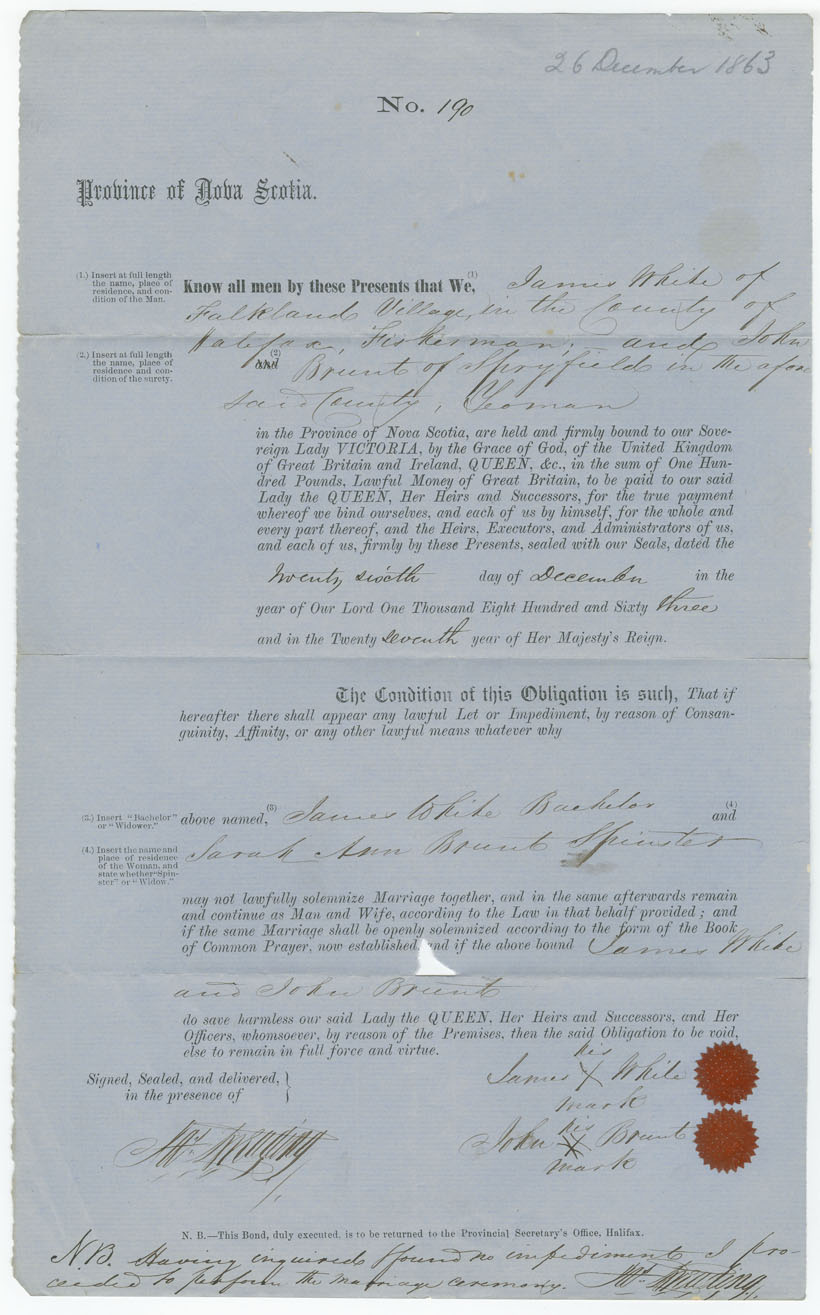 26 December 1863
No. 190
Province of Nova Scotia.
(1.) Insert at full length
the name, place of
residence, and con-
dition of the Man.
Know all men by these Presents that We, (1) James White of
Falkland Village, in the County of
Halifax, Fisherman; and John
(2.) Insert at full length
the name, place of
residence and con-
dition of the surety.
and (2) Brunt of Spryfield in the afore
said County, Yeoman
in the Province of Nova Scotia, are held and firmly bound to our Sove-
reign Lady VICTORIA, by the Grace of God, of the United Kingdom
of Great Britain and Ireland, QUEEN, &c., in the sum of One Hun-
dred Pounds, Lawful Money of Great Britain, to be paid to our said
Lady the QUEEN, Her Heirs and Successors, for the true payment
whereof we bind ourselves, and each of us by himself, for the whole and
every part thereof, and the Heirs, Executors, and Administrators of us,
and each of us, firmly by these Presents, sealed with our Seals, dated the
Twenty sixth day of December in the
year of Our Lord One Thousand Eight Hundred and Sixty three
and in the Twenty seventh year of Her Majesty's Reign.
The Condition of this Obligation is such, That if
hereafter there shall appear any lawful Let or Impediment, by reason of Consan-
guinity, Affinity, or any other lawful means whatever why
(3.) Insert "Bachelor"
or "Widower."
above named, (3) James White Bachelor (4) and
(4.) Insert the name and
place of residence
of the Woman, and
state whether "Spin-
ster" or "Widow."
Sarah Ann Brunt Spinster
may not lawfully solemnize Marriage together, and in the same afterwards remain
and continue as Man and Wife, according to the Law in that behalf provided; and
if the same Marriage shall be openly solemnized according to the form of the Book
of Common Prayer, now established, and if the above bound James White
and John Brunt
do save harmless our said Lady the QUEEN, Her Heirs and Successors, and Her
Officers, whomsoever, by reason of the Premises, then the said Obligation to be void,
else to remain in full force and virtue.
Signed, Sealed, and delivered,
in the presence of
his
James X White
mark
his
John X Brunt
mark
N. B.—This Bond, duly executed, is to be returned to the Provincial Secretary's Office, Halifax.
N.B. Having inquired & found no impediment I pro-
ceeded to perform the marriage ceremony.